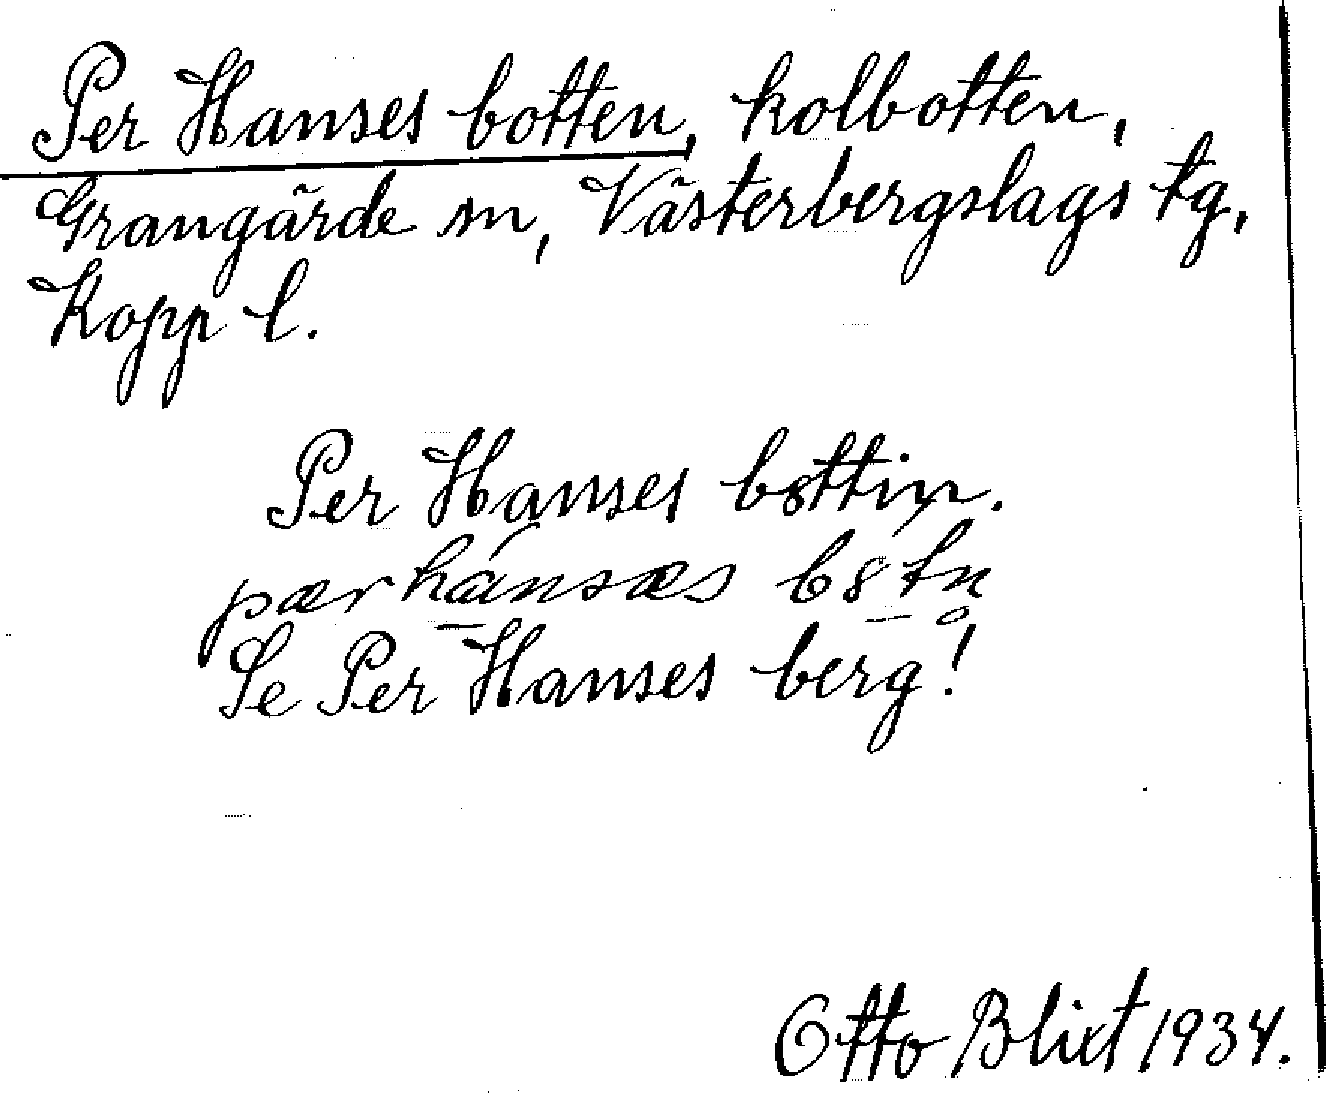 Per Hanses botten, kolbotten,
Grangärde sn, Västerbergslags tg,
Kopp l.
Per Hanses
pær hánsæs
Se Per Hanses berg!
Otto Blixt 1934.